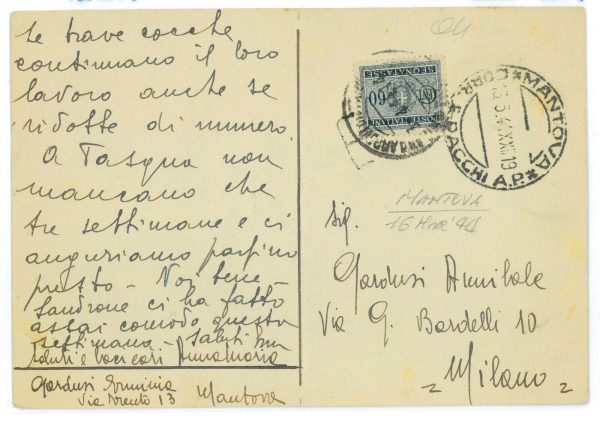 le brave cocche
continuano il loro
lavoro anche se
ridotte di numero.
A Pasqua non
mancano che
tre settimane e ci
auguriamo partino
presto - Noi bene -
Sandrone ci ha fatto
assai comodo questa
settimana - Saluti
saluti e baci cari Annamaria
Gardusi Erminia
Via Trento 13 Mantova
POSTE ITALIANE
CENT. 60
SEGNATASSE
MANTOVA
CORR. E PACCHI A.P.
MANTOVA
16 Mar
Sig.
Gardusi Annibale
Via G. Bardelli 10
= Milano =